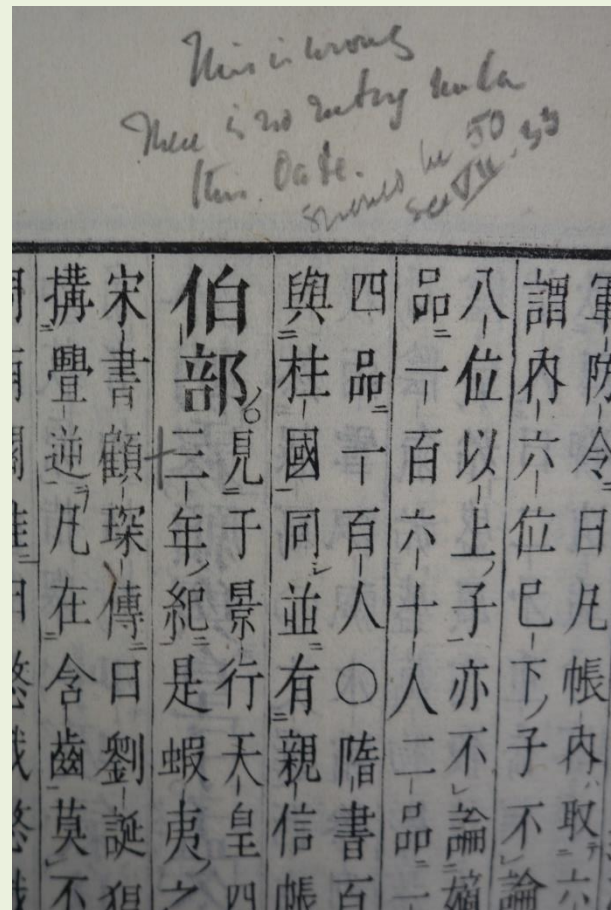 This is wrong
There is no entry under
this Date.
should be 50
see VII. 33
軍防令曰凡帳內取六
謂內六位巳下子不論
八位以上子亦不論嫡
品一百六十人二品一
四品一百人〇隋書百
與柱國同並有親信帳
伯部
見于景行天皇四
十三年紀是蝦夷之
宋書顧琛傳曰劉誕猖
搆釁逆凡在含齒莫不